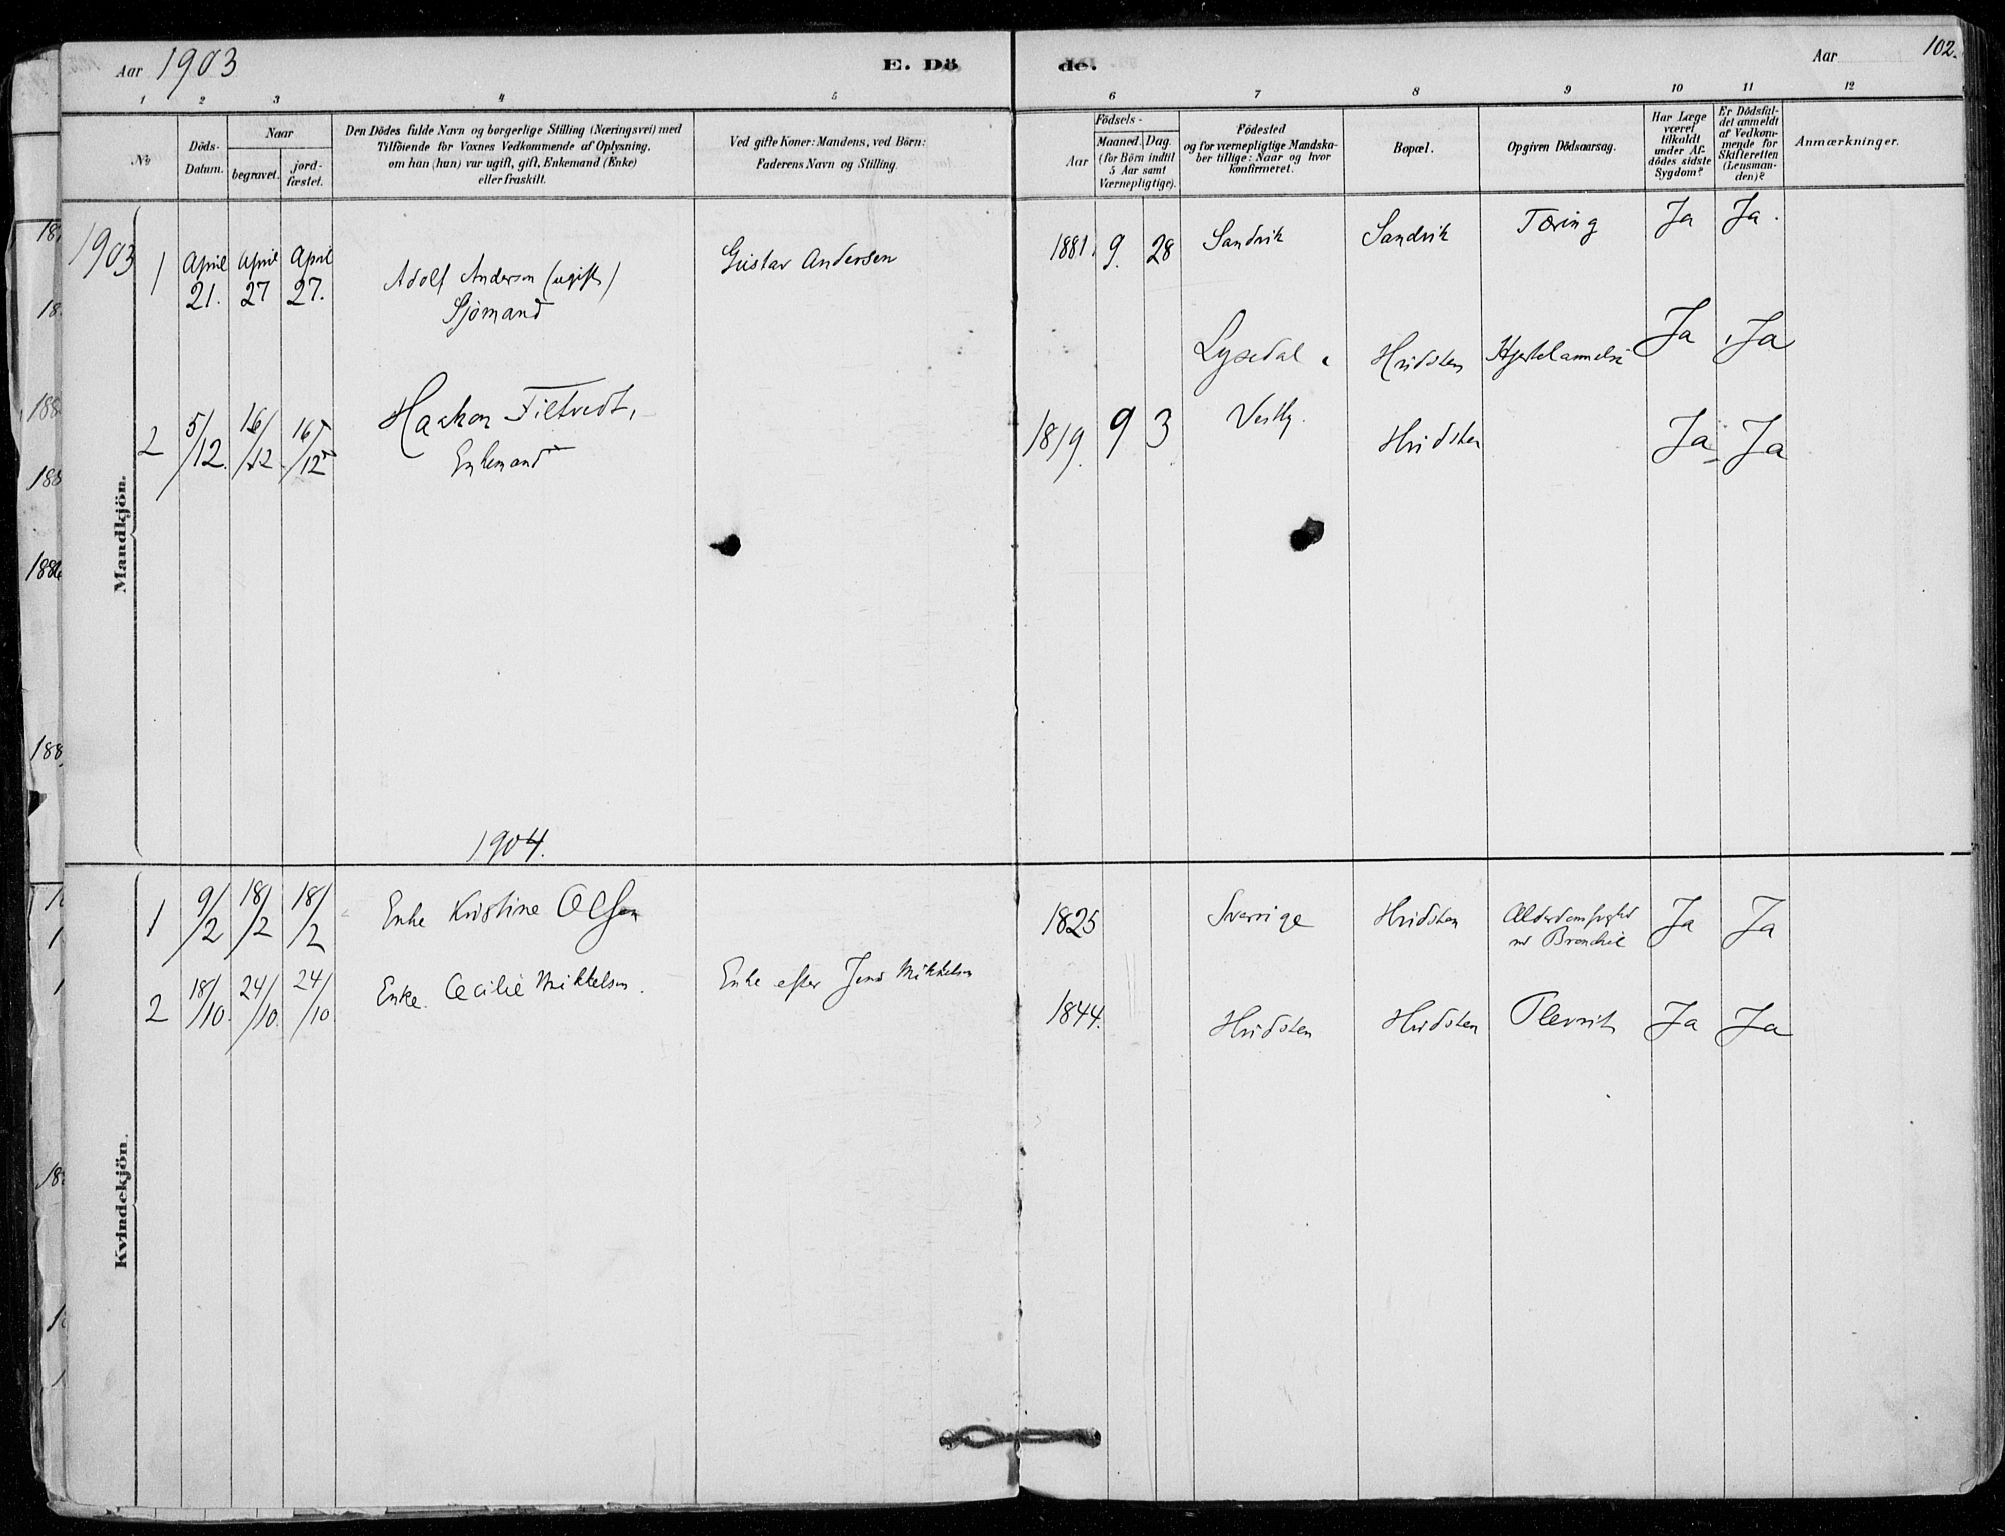 Aar 1903
E. Dö
de.
Aar
102.
1 2 3 4 5 6 7 8 9 10 11 12
No
Döds-
Datum.
Naar
begravet.
jord-
fæstet.
Den Dödes fulde Navn og borgerlige Stilling (Næringsvei) med
Tilföiende for Voxnes Vedkommende af Oplysning,
om han (hun) var ugift, gift, Enkemand (Enke)
eller fraskilt.
Ved gifte Koner: Mandens, ved Börn:
Faderens Navn og Stilling.
Födsels-
Aar
Maaned. Dag.
(for Börn indtil
5 Aar samt
Værnepligtige).
Födested
og for værnepligtige Mandska-
ber tillige: Naar og hvor
konfirmeret.
Bopæl.
Opgiven Dödsaarsag.
Har Læge
været
tilkaldt
under Af-
dödes sidste
Sygdom?
Er Dödsfal-
det anmeldt
af Vedkom-
mende for
Skifteretten
(Lensman-
den)?
Anmærkninger.
Mandkjön.
1903
1 April 21. April 27 April 27.
Adolf Andersen (ugift)
Sjömand
Gustav Andersen
1881. 9. 28 Sandvik Sandvik Tæring Ja Ja.
Hvidsten Ja Ja
2 5/12. 16/12 16/12
Haakon Filtvedt,
Enkemand
1819. 9 3 Vestby. Hvidsten Ja Ja
1904.
Kvindekjön.
1 9/2 18/2 18/2 Enke Kristine Olsen
1825 Sverrige Hvidsten
Bronchit Ja Ja
2 18/10. 24/10. 24/10 Enke Cecilie Mikkelsen. Enke efter Jens Mikkelsen
1844. Hvidsten Hvidsten Plevrit Ja Ja